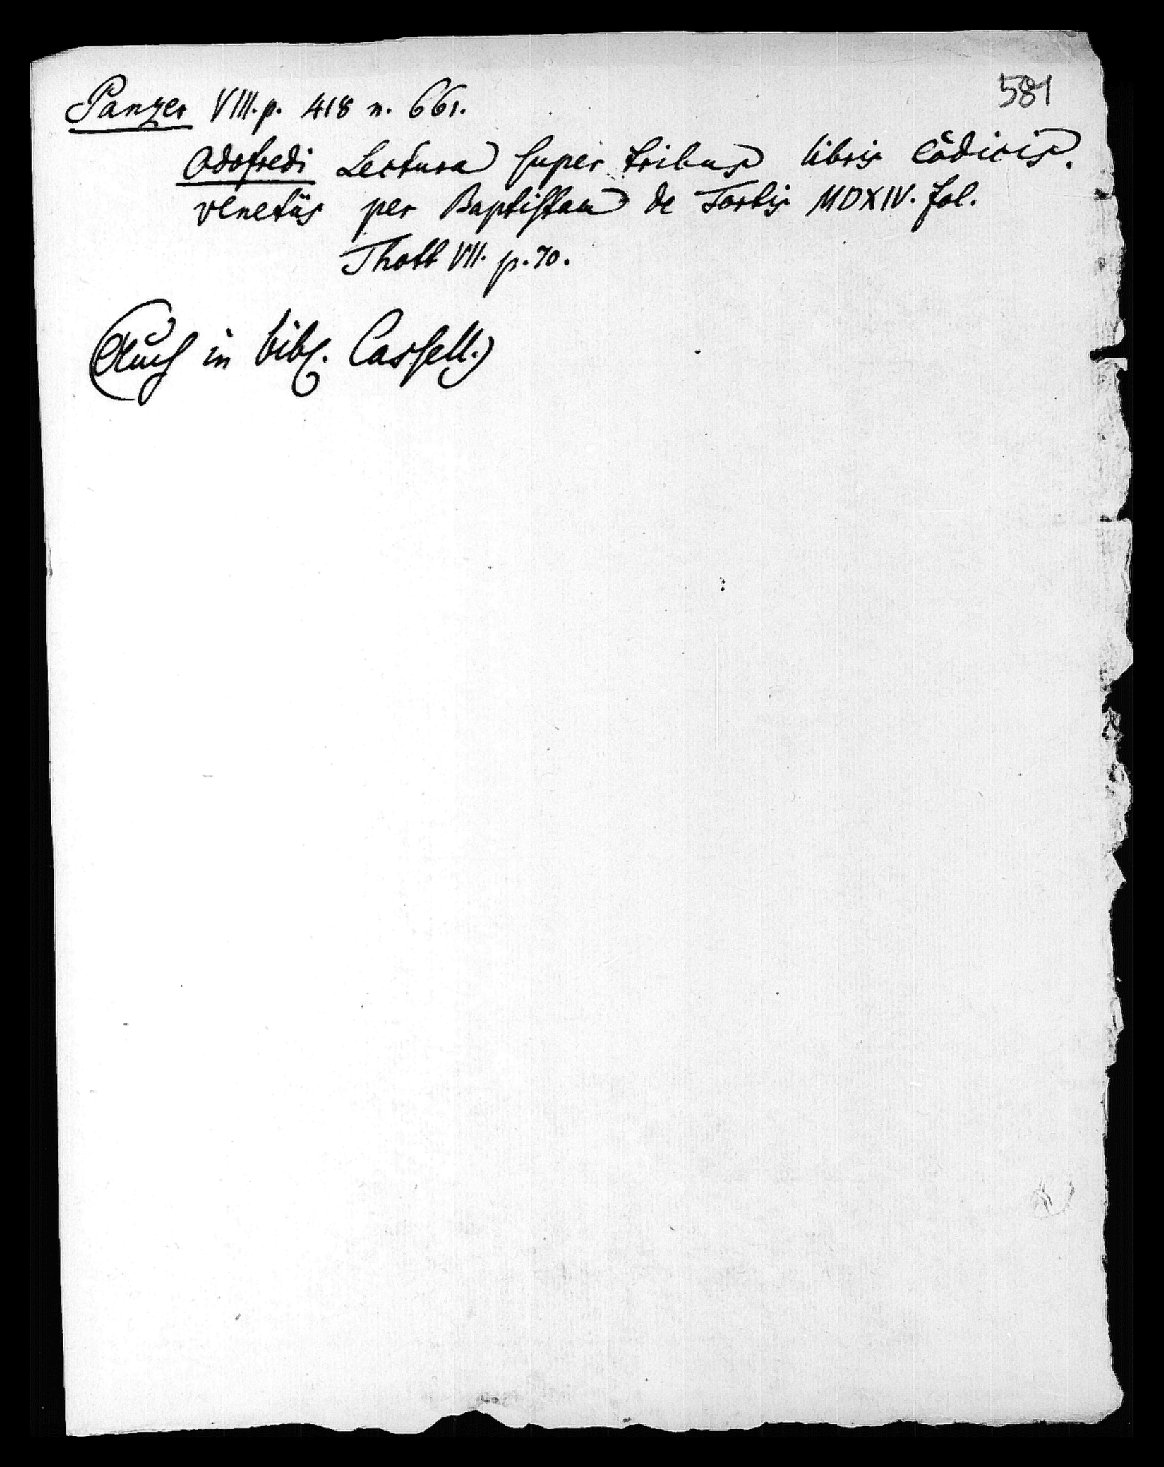 581
Panzer VIII. p. 418 n. 661.
Odofredi Lectura super tribus libris Codicis.
Venetiis per Baptistam de Tortis MDXIV. fol.
Thott VII. p. 70.
(Auch in bibl. Cassell.)